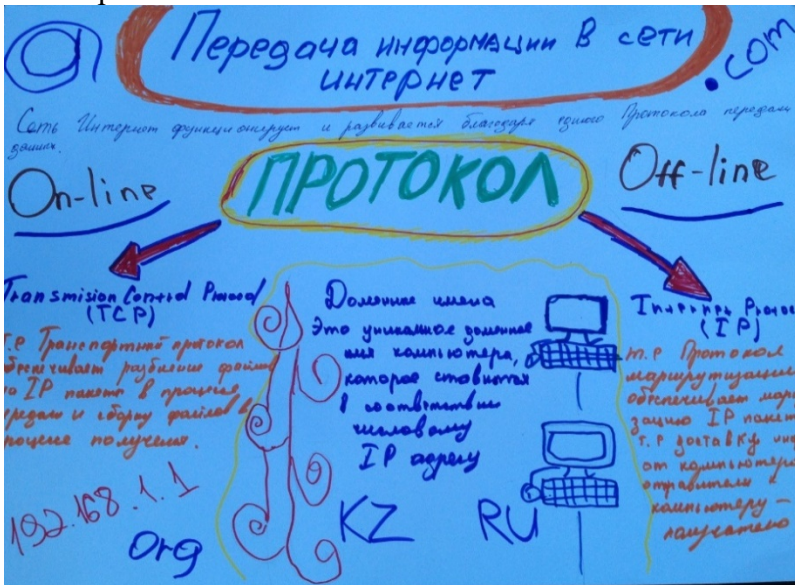 @
Передача информации в сети
интернет
.com
Сеть Интернет функционирует и развивается благодаря единого Протокола передачи
данных.
On-line
ПРОТОКОЛ
Off-line
Transmision Control Protocol
(TCP)
т.е Транспортный протокол
обеспечивает разбиение файлов
по IP пакеты в процессе
передачи и сборку файлов в
процессе получения.
192.168.1.1
org
Доменные имена
Это уникальное доменное
имя компьютера,
которое ставится
в соответствии
числовому
IP адресу
KZ
RU
(IP)
т.е Протокол
маршрутизации
обеспечивает
IP
т.е доставку
от компьютера
отправителя к
компьютеру –
получателю